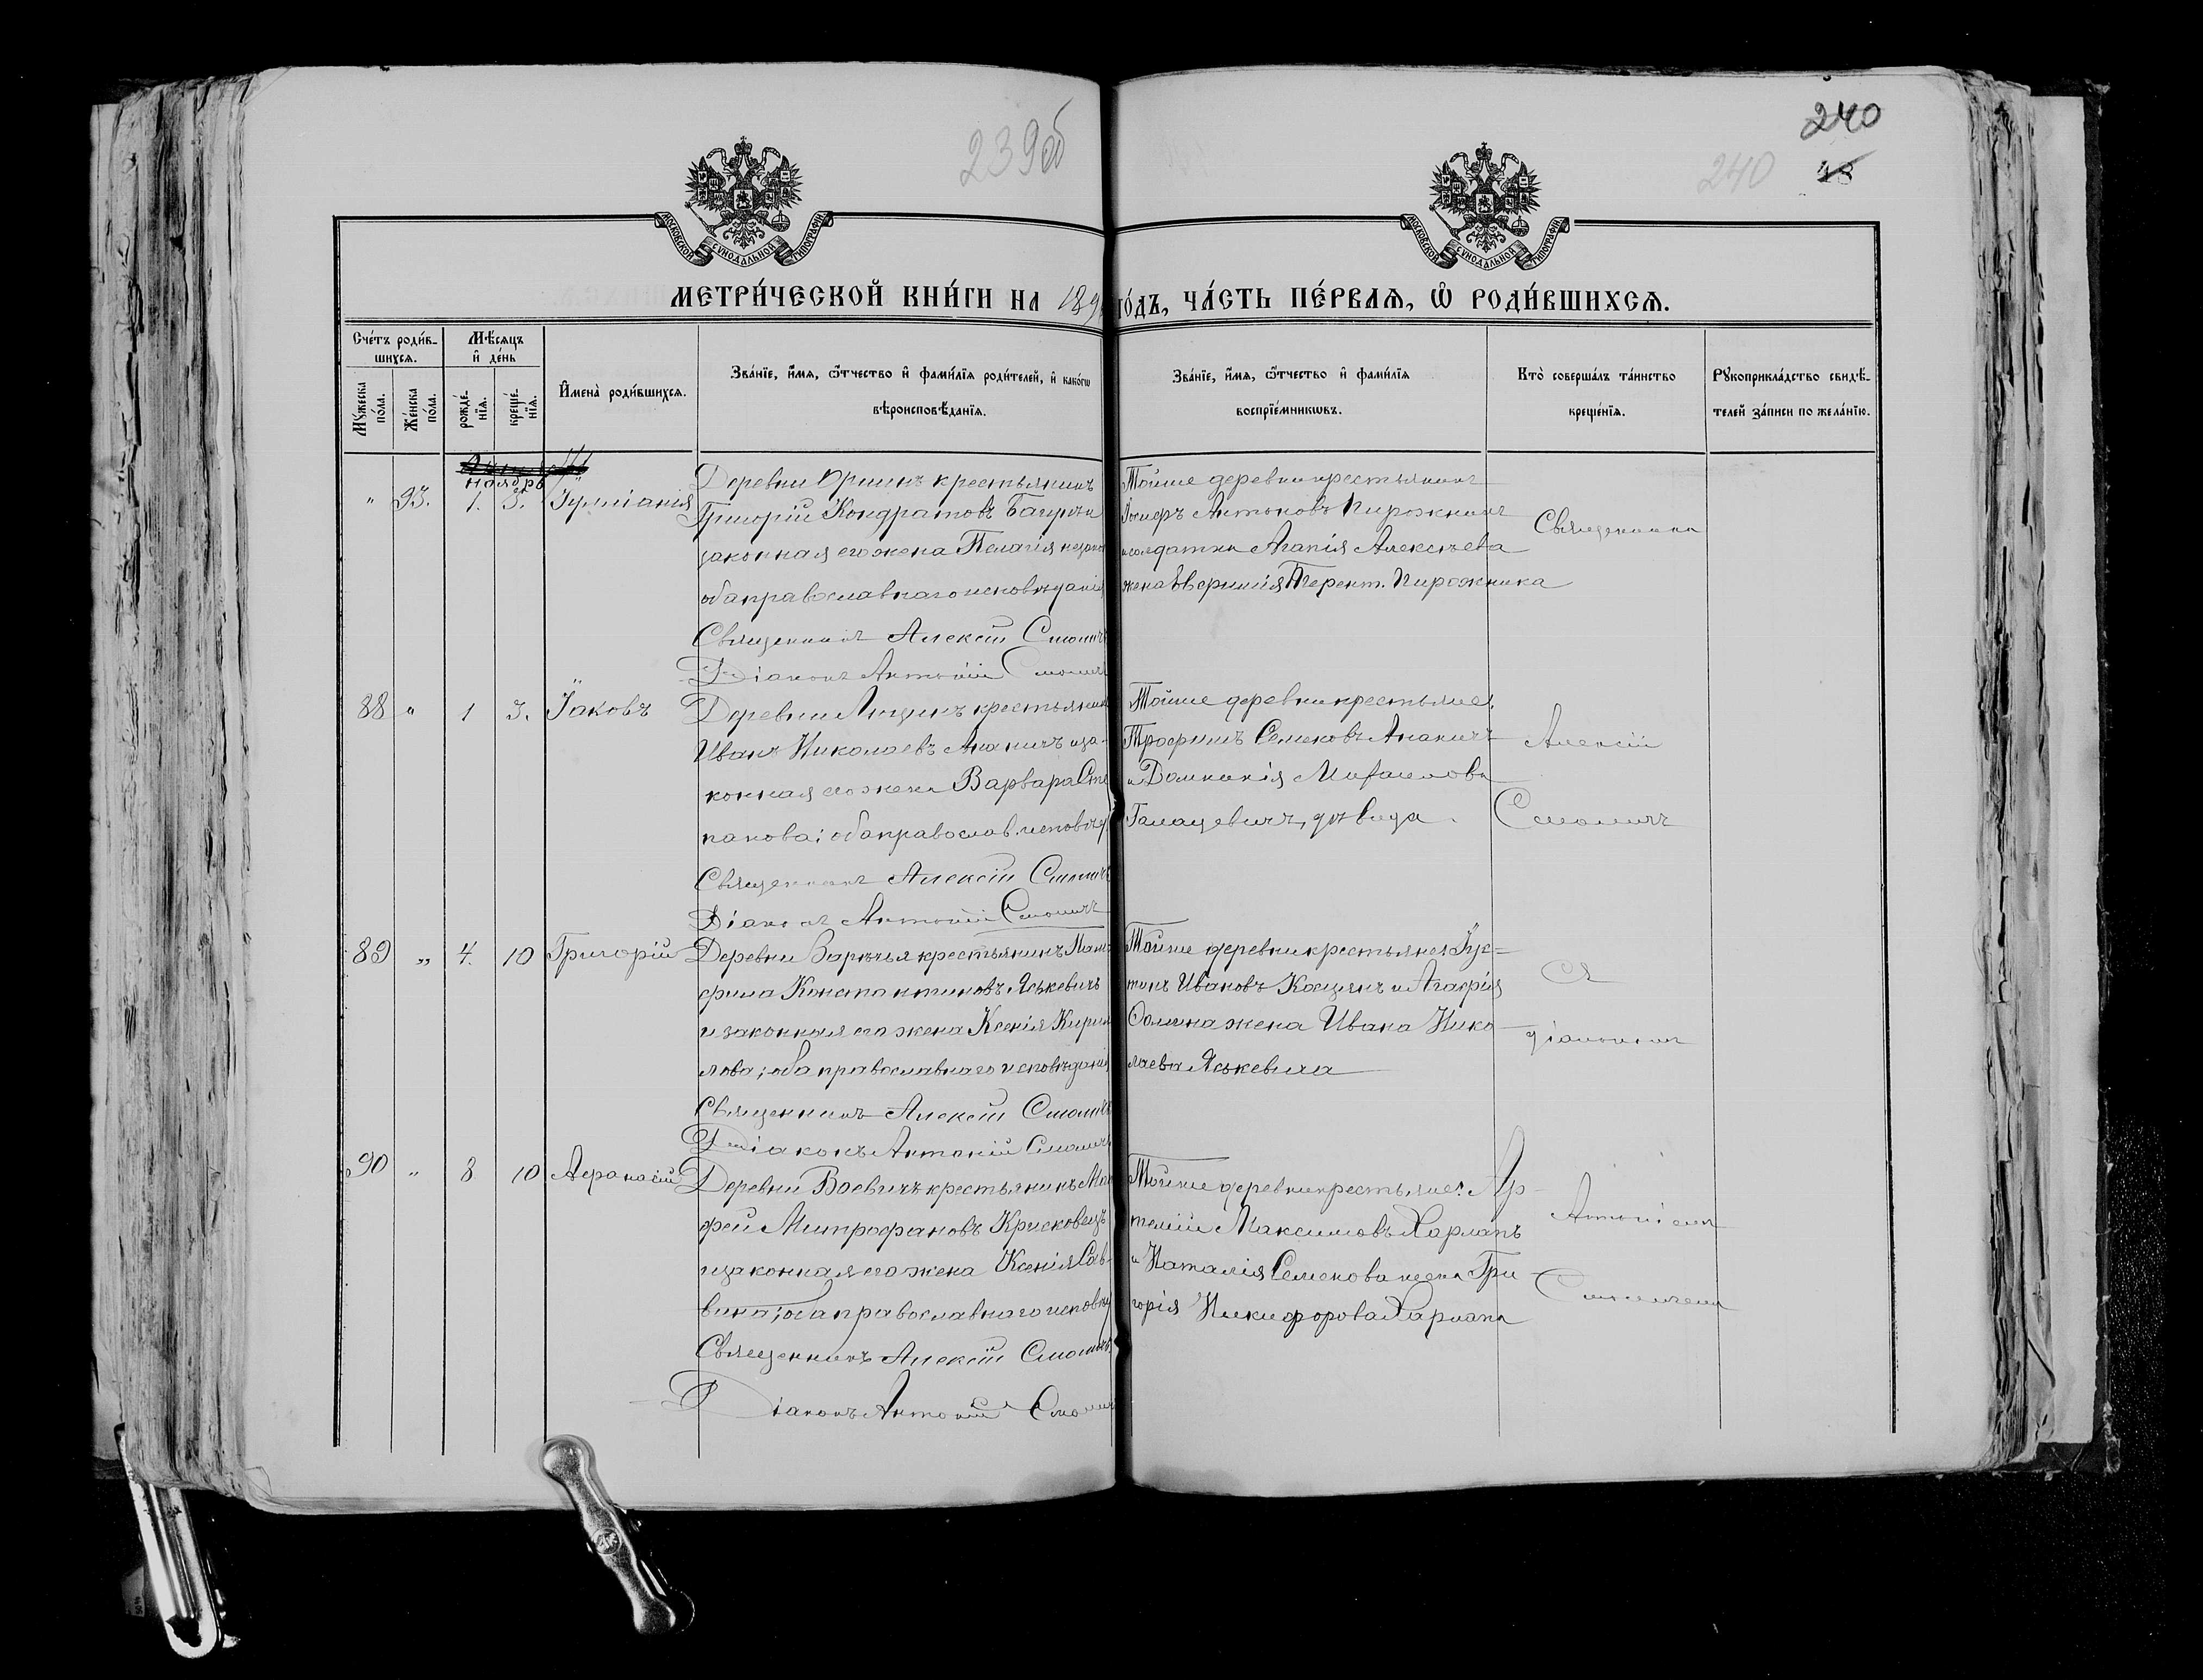 239об
240
240
18
МОСКОВСКОЙ СѴНОДАЛЬНОЙ ТИПОГРАФІИ
МОСКОВСКОЙ СѴНОДАЛЬНОЙ ТИПОГРАФІИ
МЕТРИ́ЧЕСКОЙ КНИ́ГИ НА 189
ГО́ДЪ, ЧА́СТЬ ПЕ́РВАѦ, Ѡ҆ РОДИ́ВШИХСѦ.
Сче́тъ роди́в-
шихсѧ.
Мꙋ́жеска по́ла.
Же́нска по́ла.
Мѣ́сѧцъ
и҆ де́нь
рожде́-
нїѧ.
креще́-
нїѧ.
И҆мена̀ роди́вшихсѧ.
Зва́нїе, и҆́мѧ, ѻ҆́тчество и҆ фами́лїѧ роди́телей, и҆ како́гѡ
вѣроисповѣ́данїѧ.
Зва́нїе, и҆́мѧ, ѻ҆́тчество и҆ фами́лїѧ
воспрїе́мникѡвъ.
Кто̀ соверша́лъ та́инство
креще́нїѧ.
Рꙋкоприкла́дство свидѣ́-
телей за́писи по жела́нїю.
ноябрь
" 93. 1. 3. Іуліанія
Деревни Оршинъ крестьянинъ
Григорій Кондратовъ
законная его жена Пелагія
оба православнаго исповѣданія
Священникъ Алексій Смоличъ
Діаконъ Антоній Смоличъ
Тойже деревни крестьянинъ
Іосифъ Антоновъ Пирожникъ
и солдатка Агапія Алексѣева
жена Терент. Пирожника
Священникъ
88 " 1 3. Іаковъ
Деревни крестьянинъ
Иванъ Николаевъ Ананичъ и за-
конная его жена Варвара Сте
панова; оба православ. исповѣд
Священникъ Алексій Смоличъ
Діаконъ Антоній Смоличъ
Тойже деревни крестьяне:
Трофимъ Семеновъ Ананичъ
и Домникія Михаилова
дѣвица.
Алексій
Смоличъ
89 " 4. 10 Григорій
Деревни Зарѣчья крестьянинъ Пам-
фила Константиновъ Яськевичъ
и законная его жена Ксенія Кирил
лова; оба православнаго исповѣданія
Священникъ Алексій Смоличъ
Діаконъ Антоній Смоличъ
Тойже деревни крестьяне: Іус-
тинъ Ивановъ Кощикъ и Агафія
жена Ивана Нико
лаева Яськевича
Съ
діакономъ
90 " 8 10 Афанасій
Деревни Воевичъ крестьянинъ Мат
фей Митрофановъ Крисковецъ
и законная его жена Ксенія Сав-
вина; оба православнаго исповѣд
Священникъ Алексій Смоличъ
Діаконъ Антоній Смоличъ
Тойже деревни крестьяне: Ар-
темій Максимовъ Харлапъ
и Наталія Семенова жена Гри
горія Никифорова Харлапа
Антоніемъ
Смоличемъ